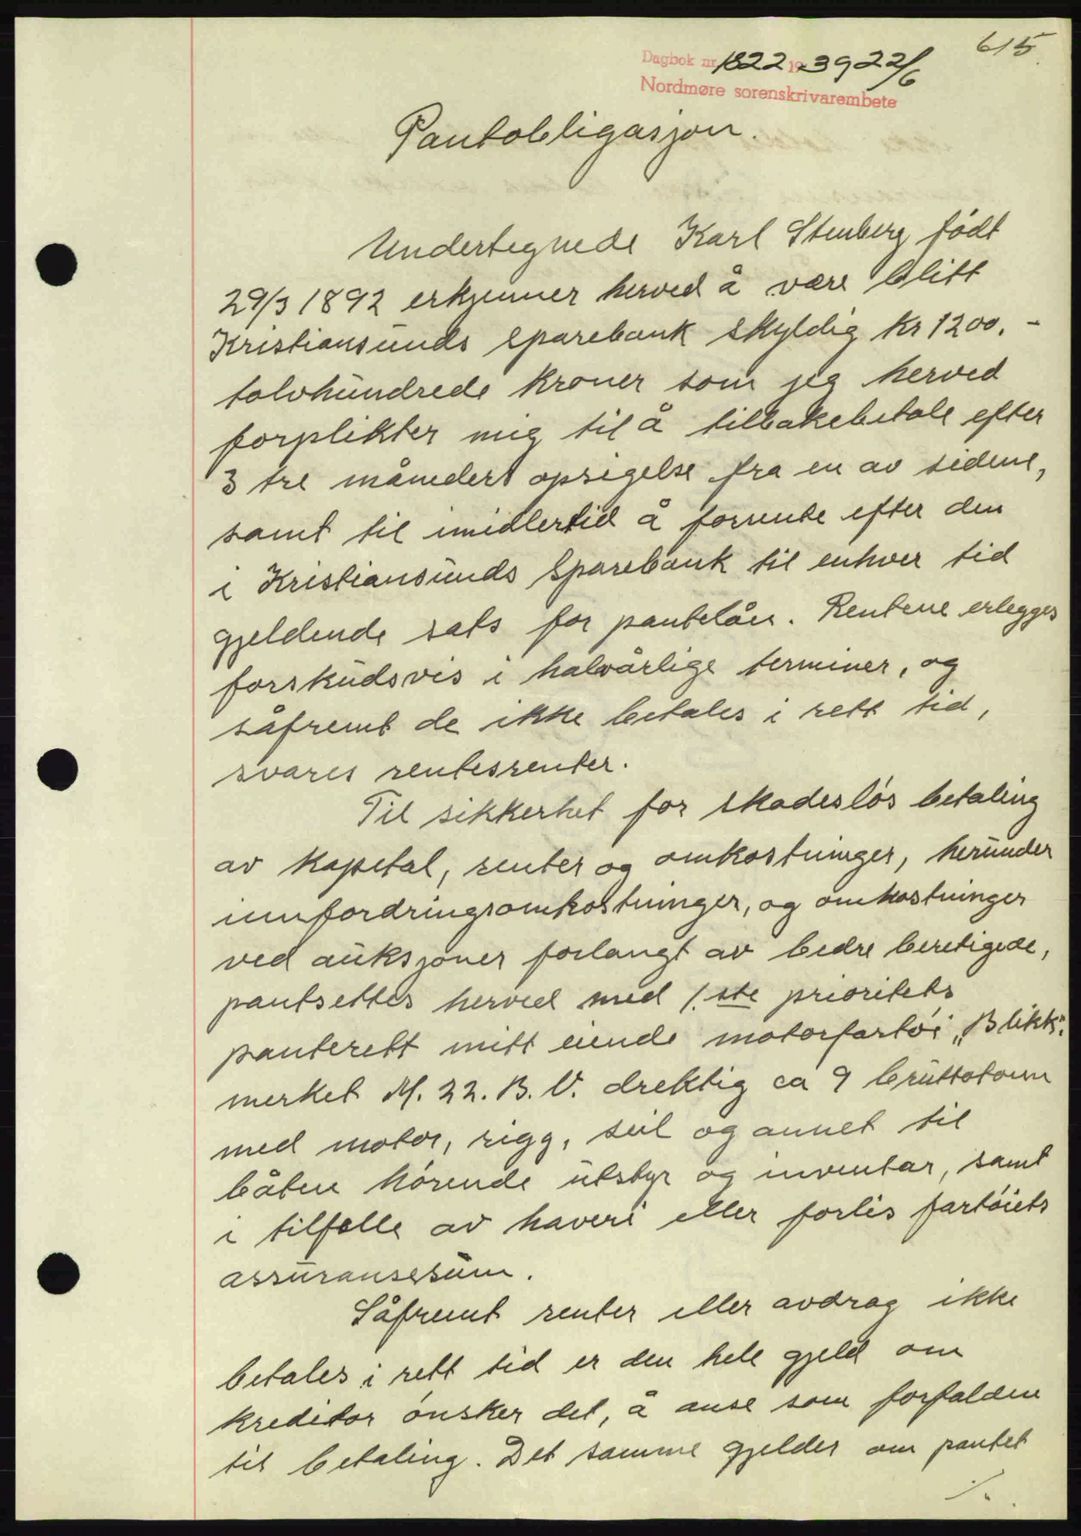 615.
Dagbok nr. 1822 1939 22/6
Nordmøre sorenskrivarembete
Pantobligasjon.
Undertegnede Karl Stenberg født
29/3 1892 erkjenner herved å være blitt
Kristiansunds Sparebank skyldig kr 1200.-
tolvhundrede kroner som jeg herved
forplikter mig til å tilbakebetale efter
3 tre måneders opsigelse fra en av sidene,
samt til imidlertid å forrente efter den
i Kristiansunds Sparebank til enhver tid
gjeldende sats for pantelån. Rentene erlegges
forskudsvis i halvårlige terminer, og
såfremt de ikke betales i rett tid,
svares rentesrenter.
Til sikkerhet for skadesløs betaling
av kapital, renter og omkostninger, herunder
innfordringsomkostninger, og omkostninger
ved auksjoner forlangt av bedre beretigede,
pantsettes herved med 1.ste prioritets
panterett mitt eiende motorfartøi „Blikk".
merket M. 22. B. V. drektig ca 9 bruttotonn
med motor, rigg, seil og annet til
båten hørende utstyr og inventar, samt
i tilfelle av haveri eller forlis fartøiets
assuransesum.
Såfremt renter eller avdrag ikke
betales i rett tid er den hele gjeld om
kreditor ønsker det, å anse som forfalden
til betaling. Det samme gjelder om pantet
./.